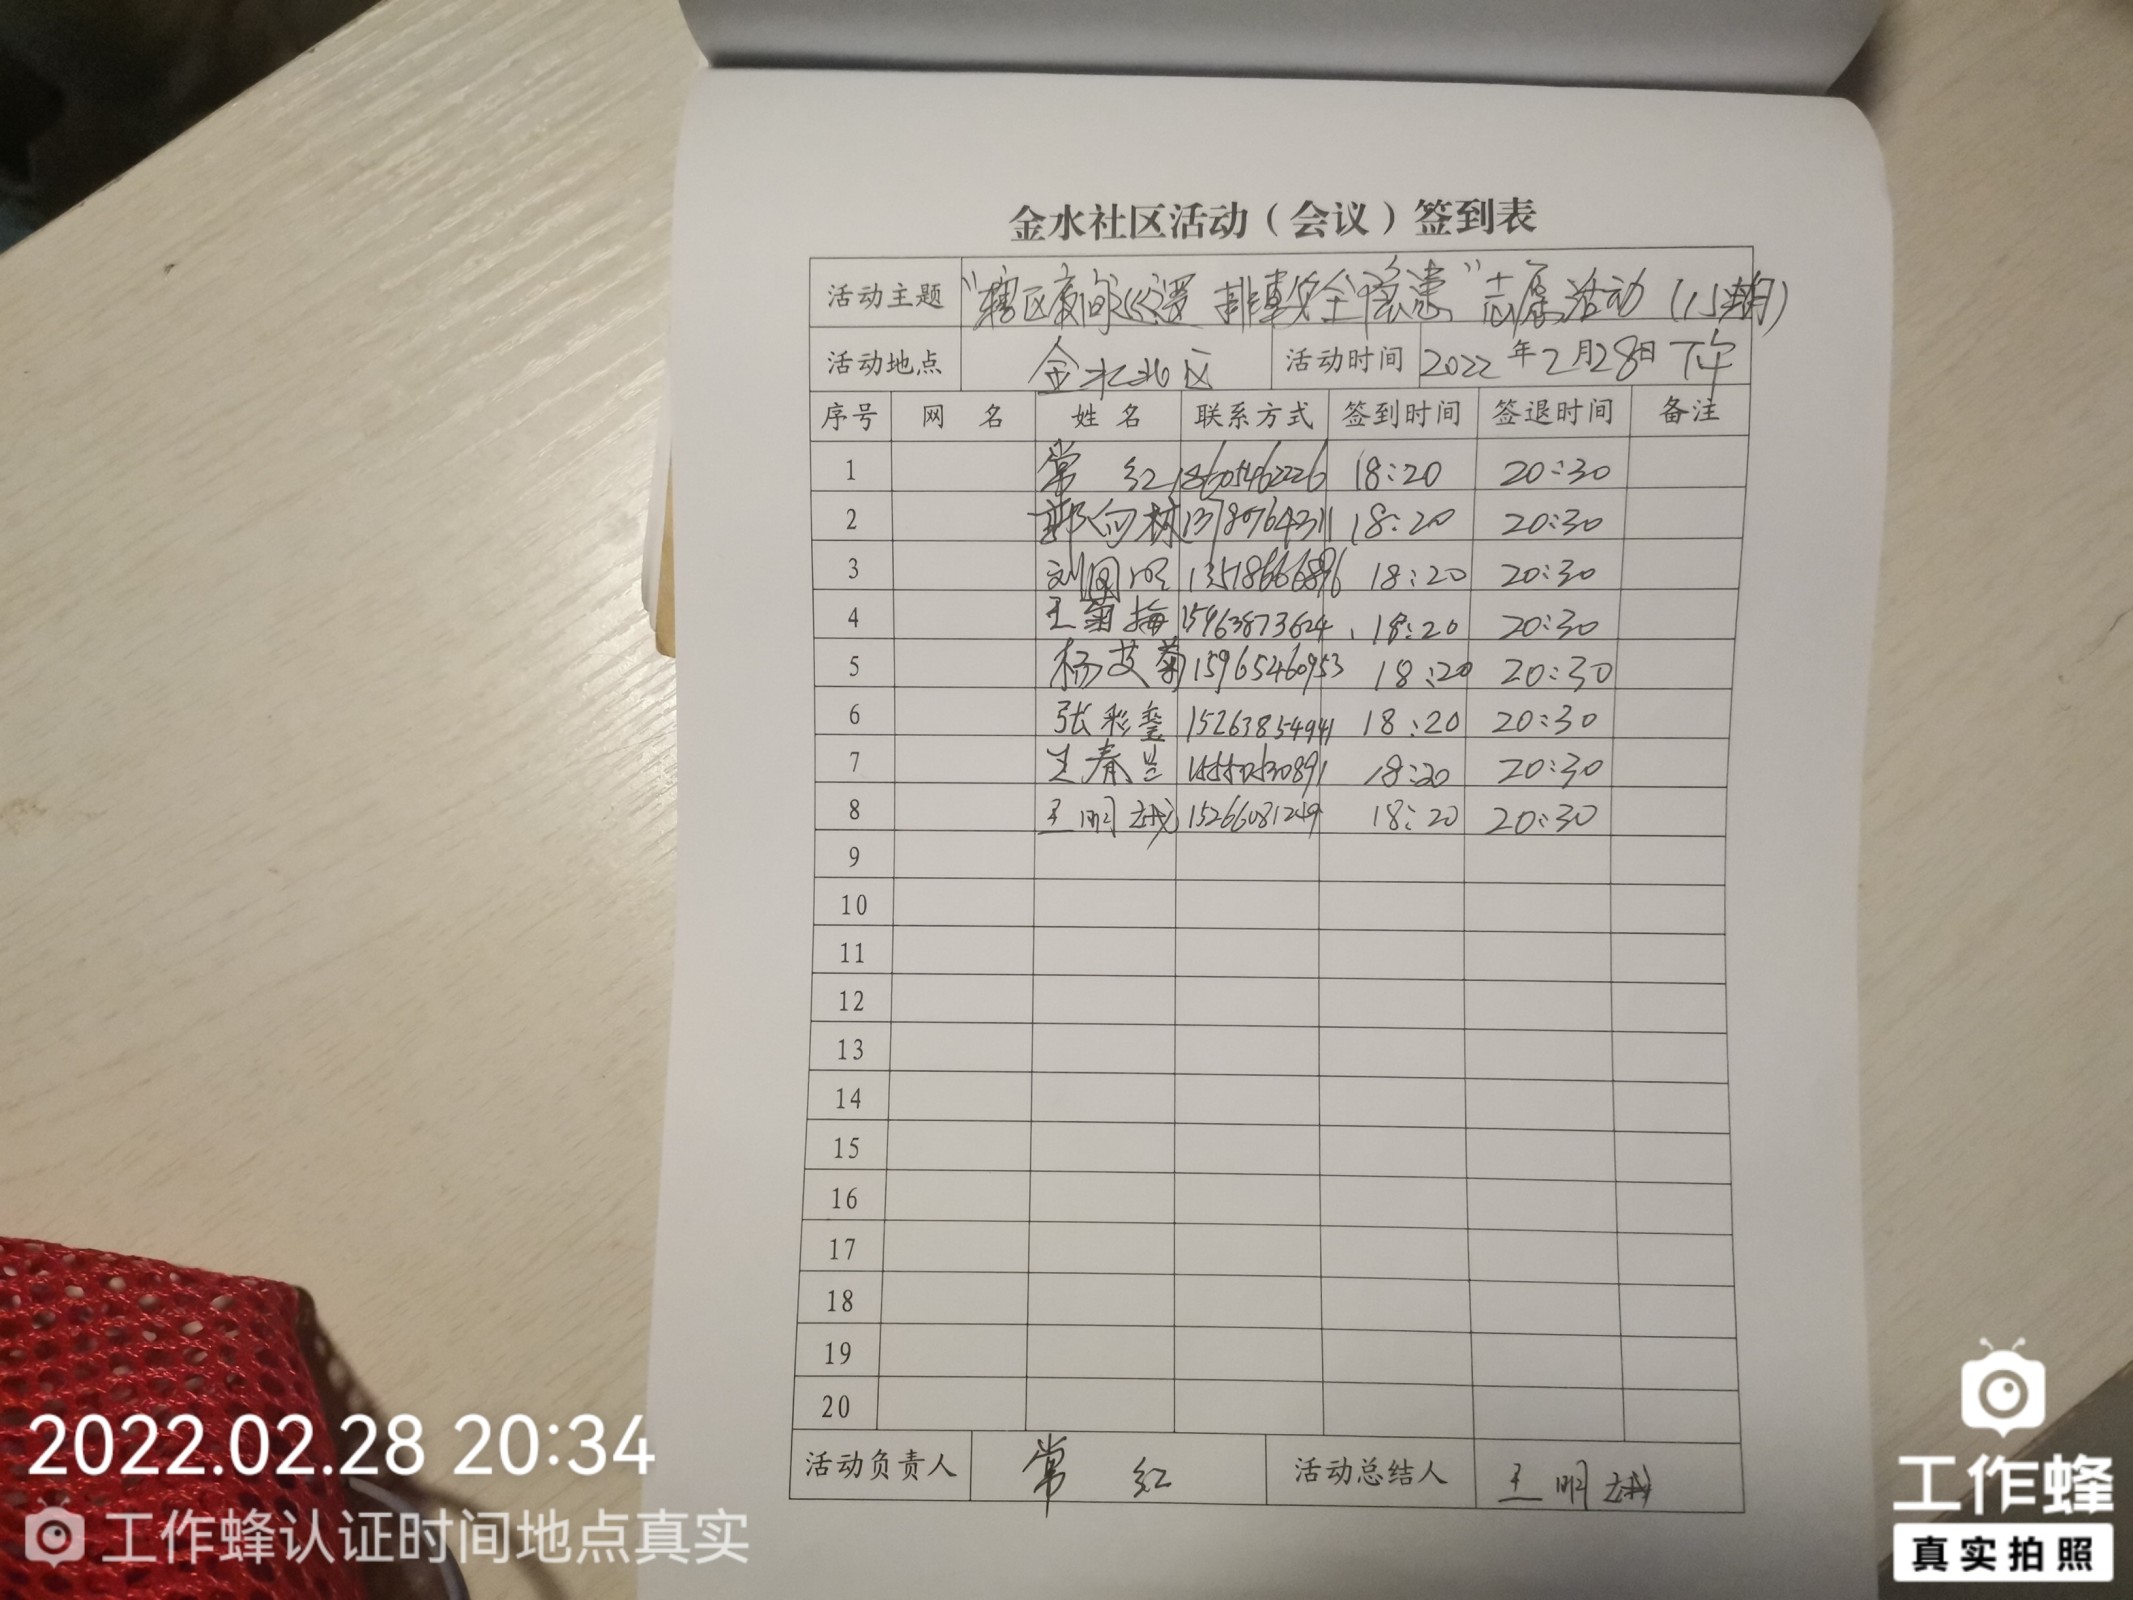 金水社区活动（会议）签到表
活动主题 “辖区夜间巡逻 排查安全隐患”志愿活动（15期）
活动地点 金水北区 活动时间 2022年2月28日下午
序号 网 名 姓 名 联系方式 签到时间 签退时间 备注
1 常 红 18605462226 18:20 20:30
2 郭向林 13780764311 18:20 20:30
3 刘国明 13518666896 18:20 20:30
4 王菊梅 15963873624 18:20 20:30
5 杨艾菊 15965460953 18:20 20:30
6 张彩 15263854941 18:20 20:30
7 王春兰 18:20 20:30
8 王明 15266081249 18:20 20:30
9
10
11
12
13
14
15
16
17
18
19
20
活动负责人 常 红 活动总结人 王明
2022.02.28 20:34
工作蜂认证时间地点真实
工作蜂
真实拍照